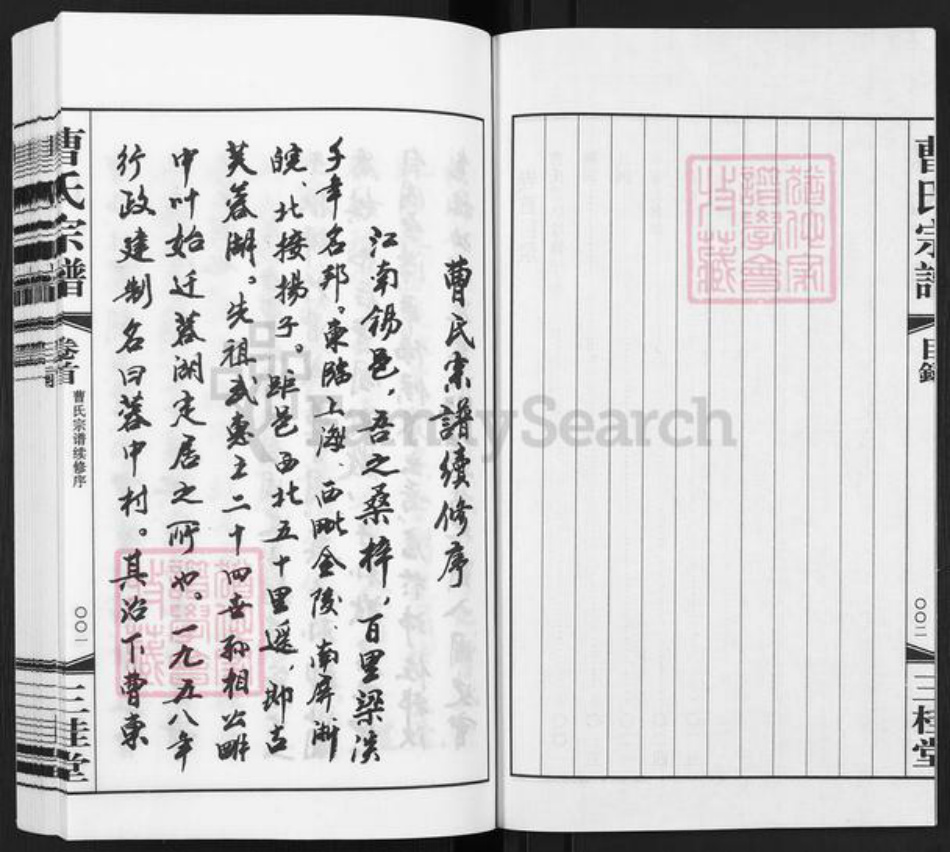 曹氏宗譜
目錄
〇〇二
三桂堂
猶他家譜學會收藏
曹氏宗譜續修序
江南锡邑，吾之桑梓，百里梁溪
千年名邦。東臨上海、西毗金陵、南屏浙
皖、北接揚子。距邑西北五十里遥，即古
芙蓉湖。先祖武惠王二十四世孙相公畊
中叶始迁蓉湖定居之所也。一九五八年
行政建制名曰蓉中村。其治下曹东
猶他家譜學會收藏
曹氏宗譜
卷首
曹氏宗谱续修序
〇〇一
三桂堂
FamilySearch